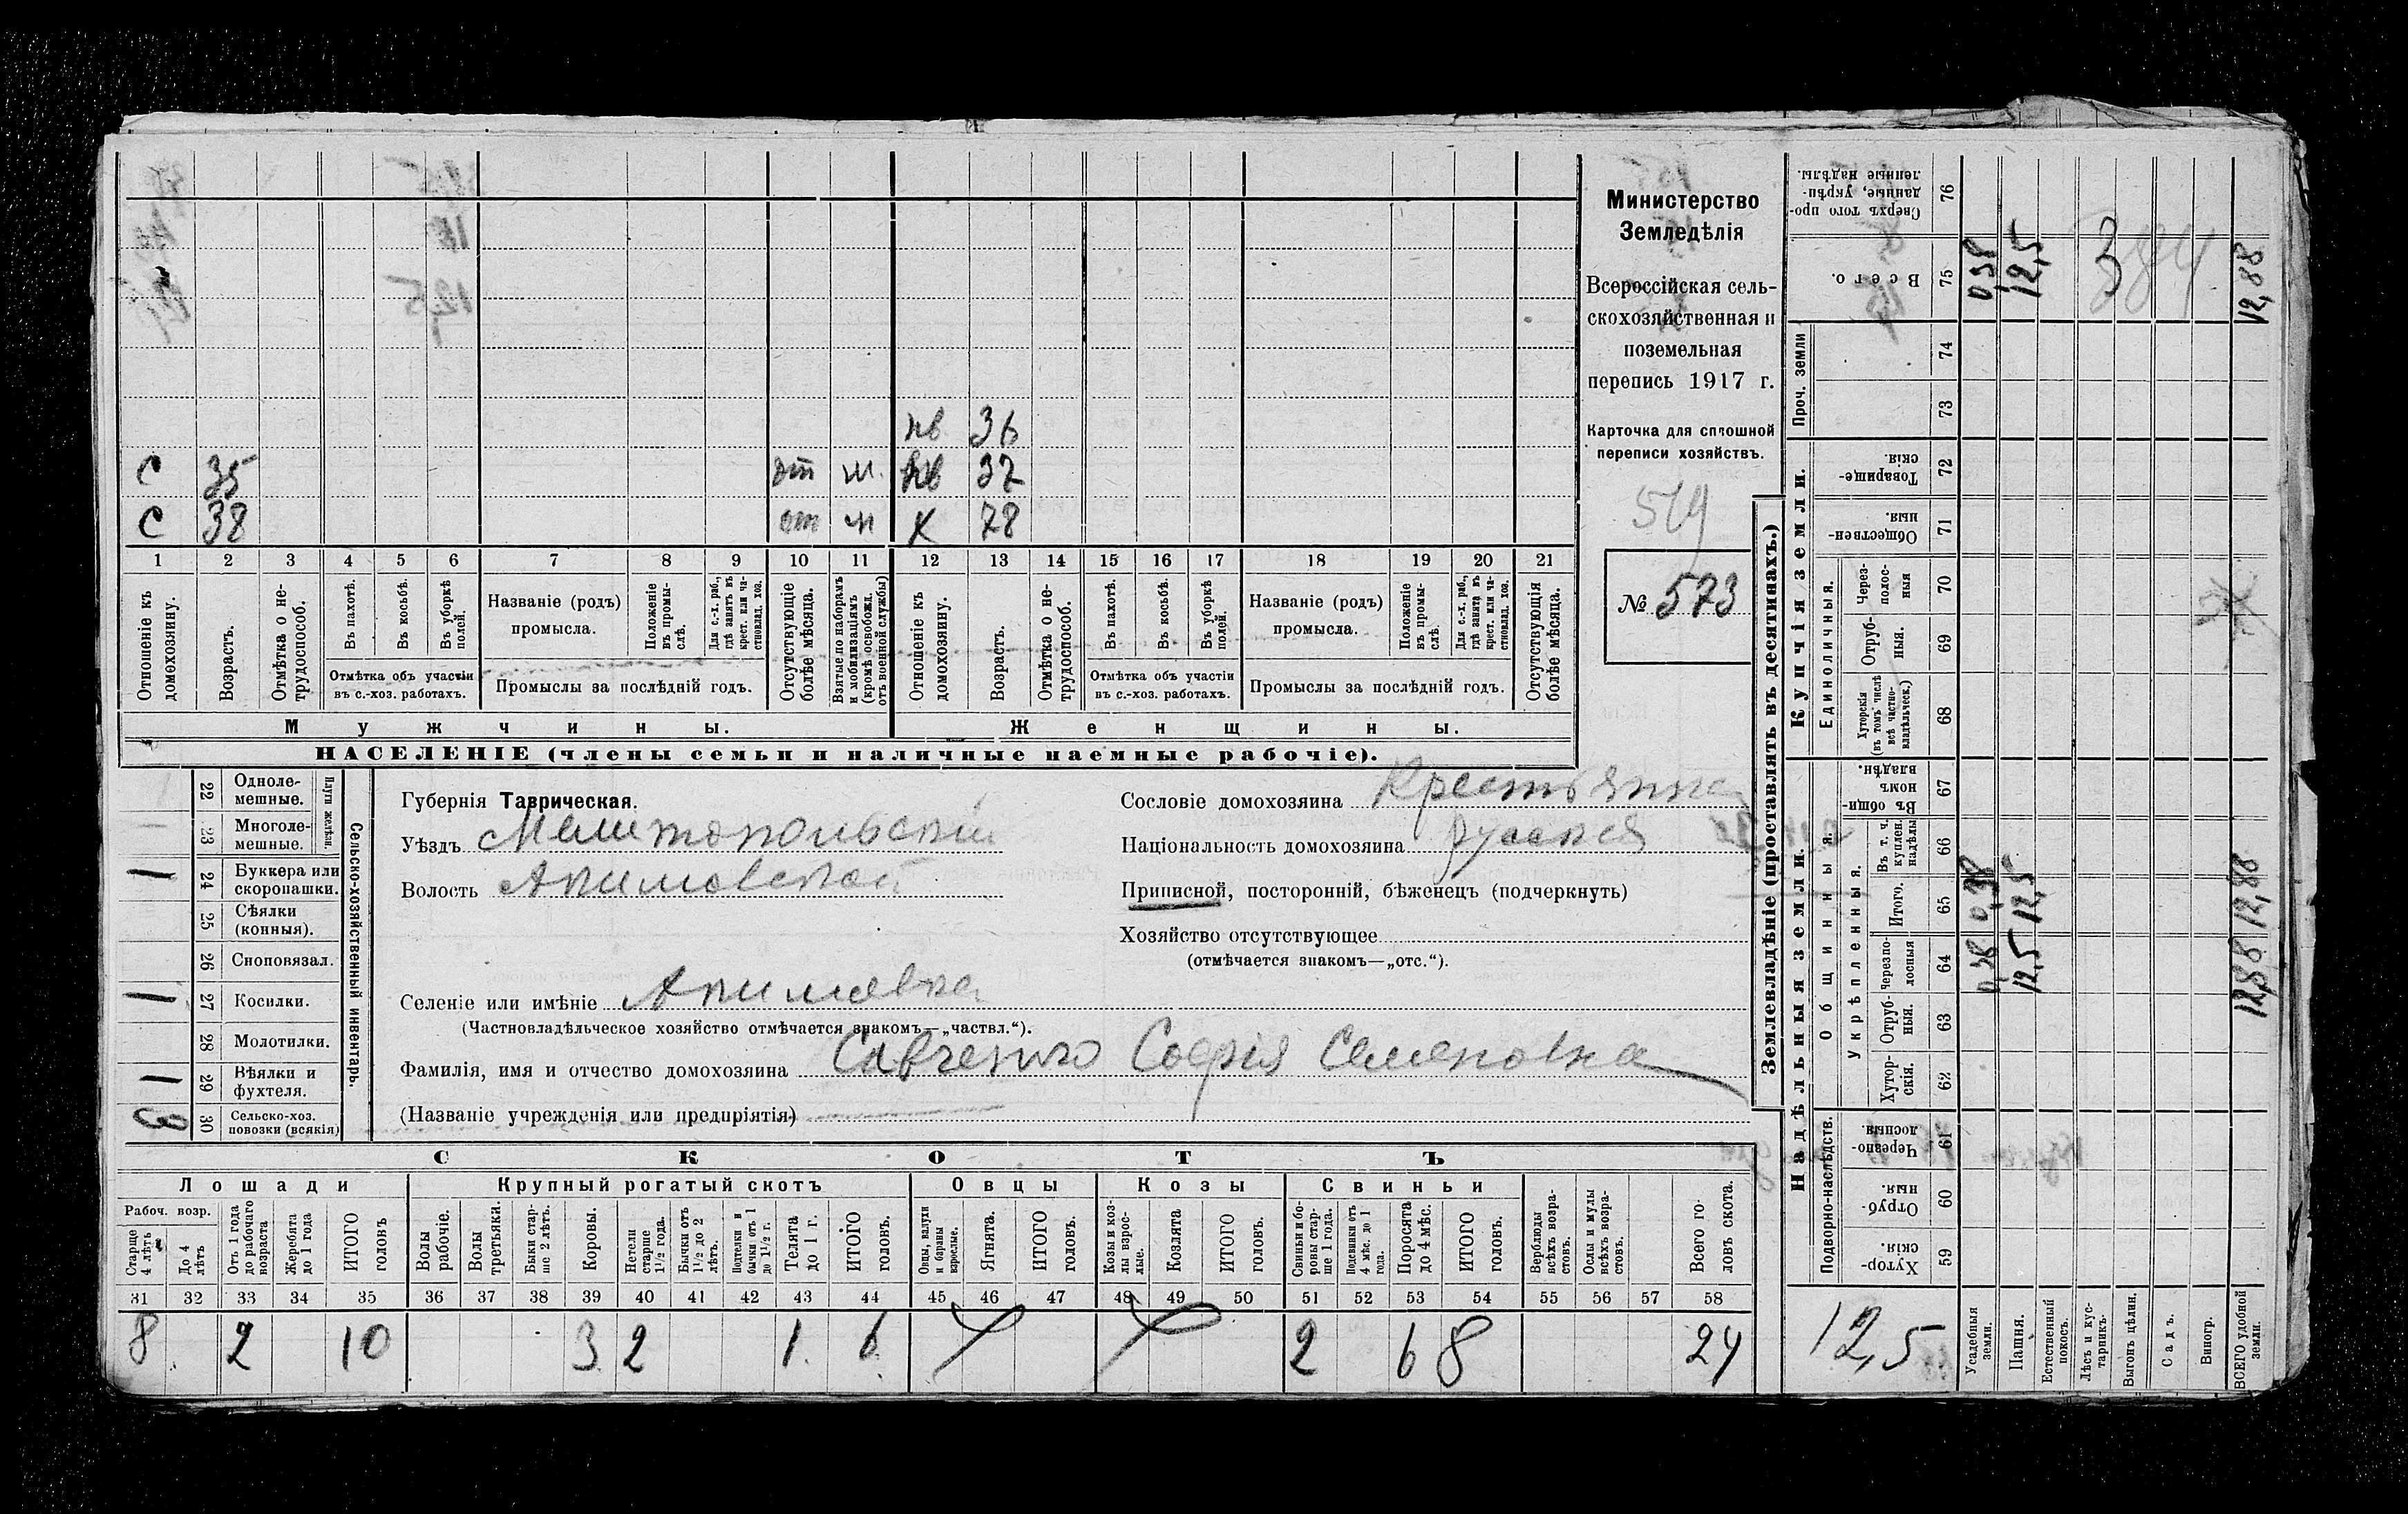 нв 36
С 35 от м. нв 37
С 38 от м Х 78
1 2 3 4 5 6 7 8 9 10 11 12 13 14 15 16 17 18 19 20 21
Отношеніе къ домохозяину.
Возрастъ.
Отмѣтка о нетрудоспособ.
Въ пахотѣ.
Въ косьбѣ.
Въ уборкѣ полей.
Отмѣтка объ участіи въ с.-хоз. работахъ.
Названіе (родъ) промысла.
Положеніе въ промыслѣ.
Для с.-х. раб., гдѣ занятъ въ крест. или частновлад. хоз.
Промыслы за послѣдній годъ.
Отсутствующіе болѣе мѣсяца.
Взятые по наборамъ и мобилизаціямъ (кромѣ освобожд. отъ военной службы)
Отношеніе къ домохозяину.
Возрастъ.
Отмѣтка о нетрудоспособ.
Въ пахотѣ.
Въ косьбѣ.
Въ уборкѣ полей.
Отмѣтка объ участіи въ с.-хоз. работахъ.
Названіе (родъ) промысла.
Положеніе въ промыслѣ.
Для с.-х. раб., гдѣ занята въ крест. или частновлад. хоз.
Промыслы за послѣдній годъ.
Отсутствующія болѣе мѣсяца.
Мужчины. Женщины.
НАСЕЛЕНІЕ (члены семьи и наличные наемные рабочіе).
Министерство
Земледѣлія
Всероссійская сель-
скохозяйственная и
поземельная
перепись 1917 г.
Карточка для сплошной
переписи хозяйствъ.
519
№ 573
Сельско-хозяйственный инвентарь.
Плуги желѣзн.
22 Одноле-мешные.
23 Многоле-мешные.
1 24 Буккера или скоропашки.
25 Сѣялки (конныя).
26 Сноповязал.
1 27 Косилки.
28 Молотилки.
1 29 Вѣялки и фухтеля.
3 30 Сельско-хоз. повозки (всякія)
Губернія Таврическая.
Уѣздъ Мелитопольскій
Волость Акимовской
Селеніе или имѣніе Акимовка
(Частновладѣльческое хозяйство отмѣчается знакомъ—„частвл.“).
Фамилія, имя и отчество домохозяина Савченко Софія Семеновна
(Названіе учрежденія или предпріятія)
Сословіе домохозяина Крестьянка
Національность домохозяина русская
Приписной, посторонній, бѣженецъ (подчеркнуть)
Хозяйство отсутствующее
(отмѣчается знакомъ—„отс.“).
СКОТЪ
Лошади Крупный рогатый скотъ Овцы Козы Свиньи
Рабоч. возр.
Старше 4 лѣтъ
До 4 лѣтъ
Отъ 1 года до рабочаго возраста
Жеребята до 1 года
ИТОГО головъ
Волы рабочіе.
Волы третьяки.
Быки старше 2 лѣтъ.
Коровы.
Нетели старше 1½ года.
Бычки отъ 1½ до 2 лѣтъ.
Подтелки и бычки отъ 1 до 1½ г.
Телята до 1 г.
ИТОГО головъ.
Овцы, валухи и бараны взрослые.
Ягнята.
ИТОГО головъ.
Козы и козлы взрослые.
Козлята
ИТОГО головъ.
Свиньи и боровы старше 1 года.
Подсвинки отъ 4 мѣс. до 1 года.
Поросята до 4 мѣс.
ИТОГО головъ.
Верблюды всѣхъ возрастовъ.
Ослы и мулы всѣхъ возрастовъ.
Всего головъ скота.
31 32 33 34 35 36 37 38 39 40 41 42 43 44 45 46 47 48 49 50 51 52 53 54 55 56 57 58
8 2 10 3 2 1 6 2 6 8 24
Землевладѣніе (проставлять въ десятинахъ.)
Надѣльныя земли. Купчія земли. Проч. земли
Подворно-наслѣдств. Общинныя. Укрѣпленныя. Единоличныя.
59 Хуторскія.
60 Отрубныя.
61 Черезполосныя.
62 Хуторскія.
63 Отрубныя.
64 Черезполосныя
65 Итого.
66 Въ т. ч. куплен. надѣлы
67 Въ общинномъ владѣн.
68 Хуторскія (въ томъ числѣ всѣ частновладѣльческ.)
69 Отрубныя.
70 Черезполосныя
71 Общественныя.
72 Товарищескія.
73
74
75 Всего.
76 Сверхъ того проданные, укрѣпленные надѣлы.
12,5
Усадебныя земли. 0,38 0,38 0,38
Пашня. 12,5 12,5 12,5
Естественный покосъ.
Лѣсъ и кустарникъ.
Выгонъ цѣлин.
Садъ.
Виногр.
ВСЕГО удобной земли. 12,88 12,88 12,88
384